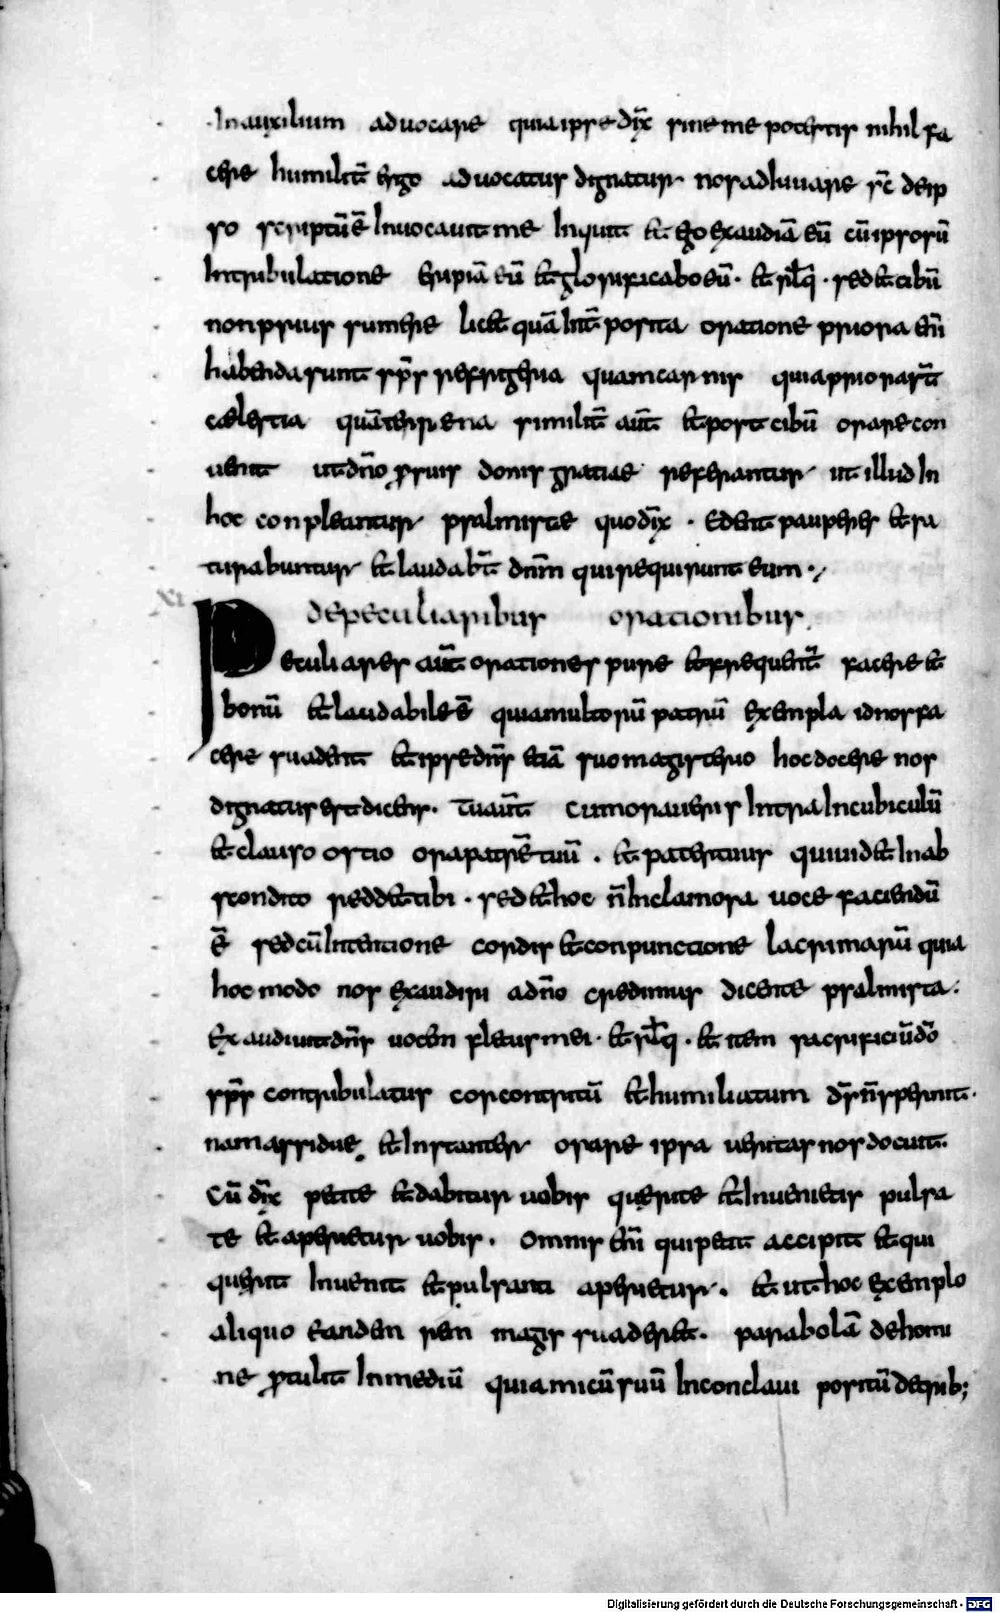 In auxilium aduocare quia ipse dix̄ sine me potestis nihil fa
cere humilit̄ ergo aduocatus dignatur nos adiuuare sc̄ de ip
so scriptū ē Inuocauit me Inquit et ego exaudiā eū cū ipso sū
In tribulatione eripiā eū et glorificabo eū · et rl̄q · sed et cibū
non prius sumere licet quā Int̄posita oratione priora enī
habenda sunt sp̄s refrigeria quam carnis quia priora st̄
cælestia quā terrena similit̄ aūt et post cibū orare con
uenit ut dn̄o ꝓ suis donis gratiae referantur ut illud In
hoc conpleatur psalmiste quod dix̄ · edent pauperes et sa
turabuntur et laudabt̄ dnm̄ qui requirunt eum ·
XI
de peculiaribus orationibus
Peculiares aūt orationes pure et frequent̄ facere et
bonū et laudabile ē quia multorū patrū exempla id nos fa
cere suadent et ipse dn̄s etiā suo magisterio hoc docere nos
dignatus est dicens · Tu aūt cum oraueris Intra In cubiculū
et clauso ostio ora patrē tuū · et pater tuus qui uidet In ab
scondito reddet tibi · sed et hoc n̄ In clamora uoce faciendū
ē sed cū Intentione cordis et conpunctione lacrimarū quia
hoc modo nos exaudiri a dn̄o credimus dicente psalmista ·
Exaudiuit dn̄s uocem fletus mei · et rl̄q · et item sacrificiū dō
sp̄s contribulatus cor contritū et humiliatum d̄s n̄ spernit ·
nam assidue et Instanter orare ipsa ueritas nos docuit
Cū dix̄ petite et dabitur uobis querite et Inuenietis pulsa
te et aperietur uobis · omnis enī qui petit accipit et qui
querit Inuenit et pulsanti aperietur · et ut hoc exemplo
aliquo eandem rem magis suaderet · parabolā de homi
ne ꝓtulit In mediū qui amicū suū In conclaui positū de trib;
Digitalisierung gefördert durch die Deutsche Forschungsgemeinschaft - DFG